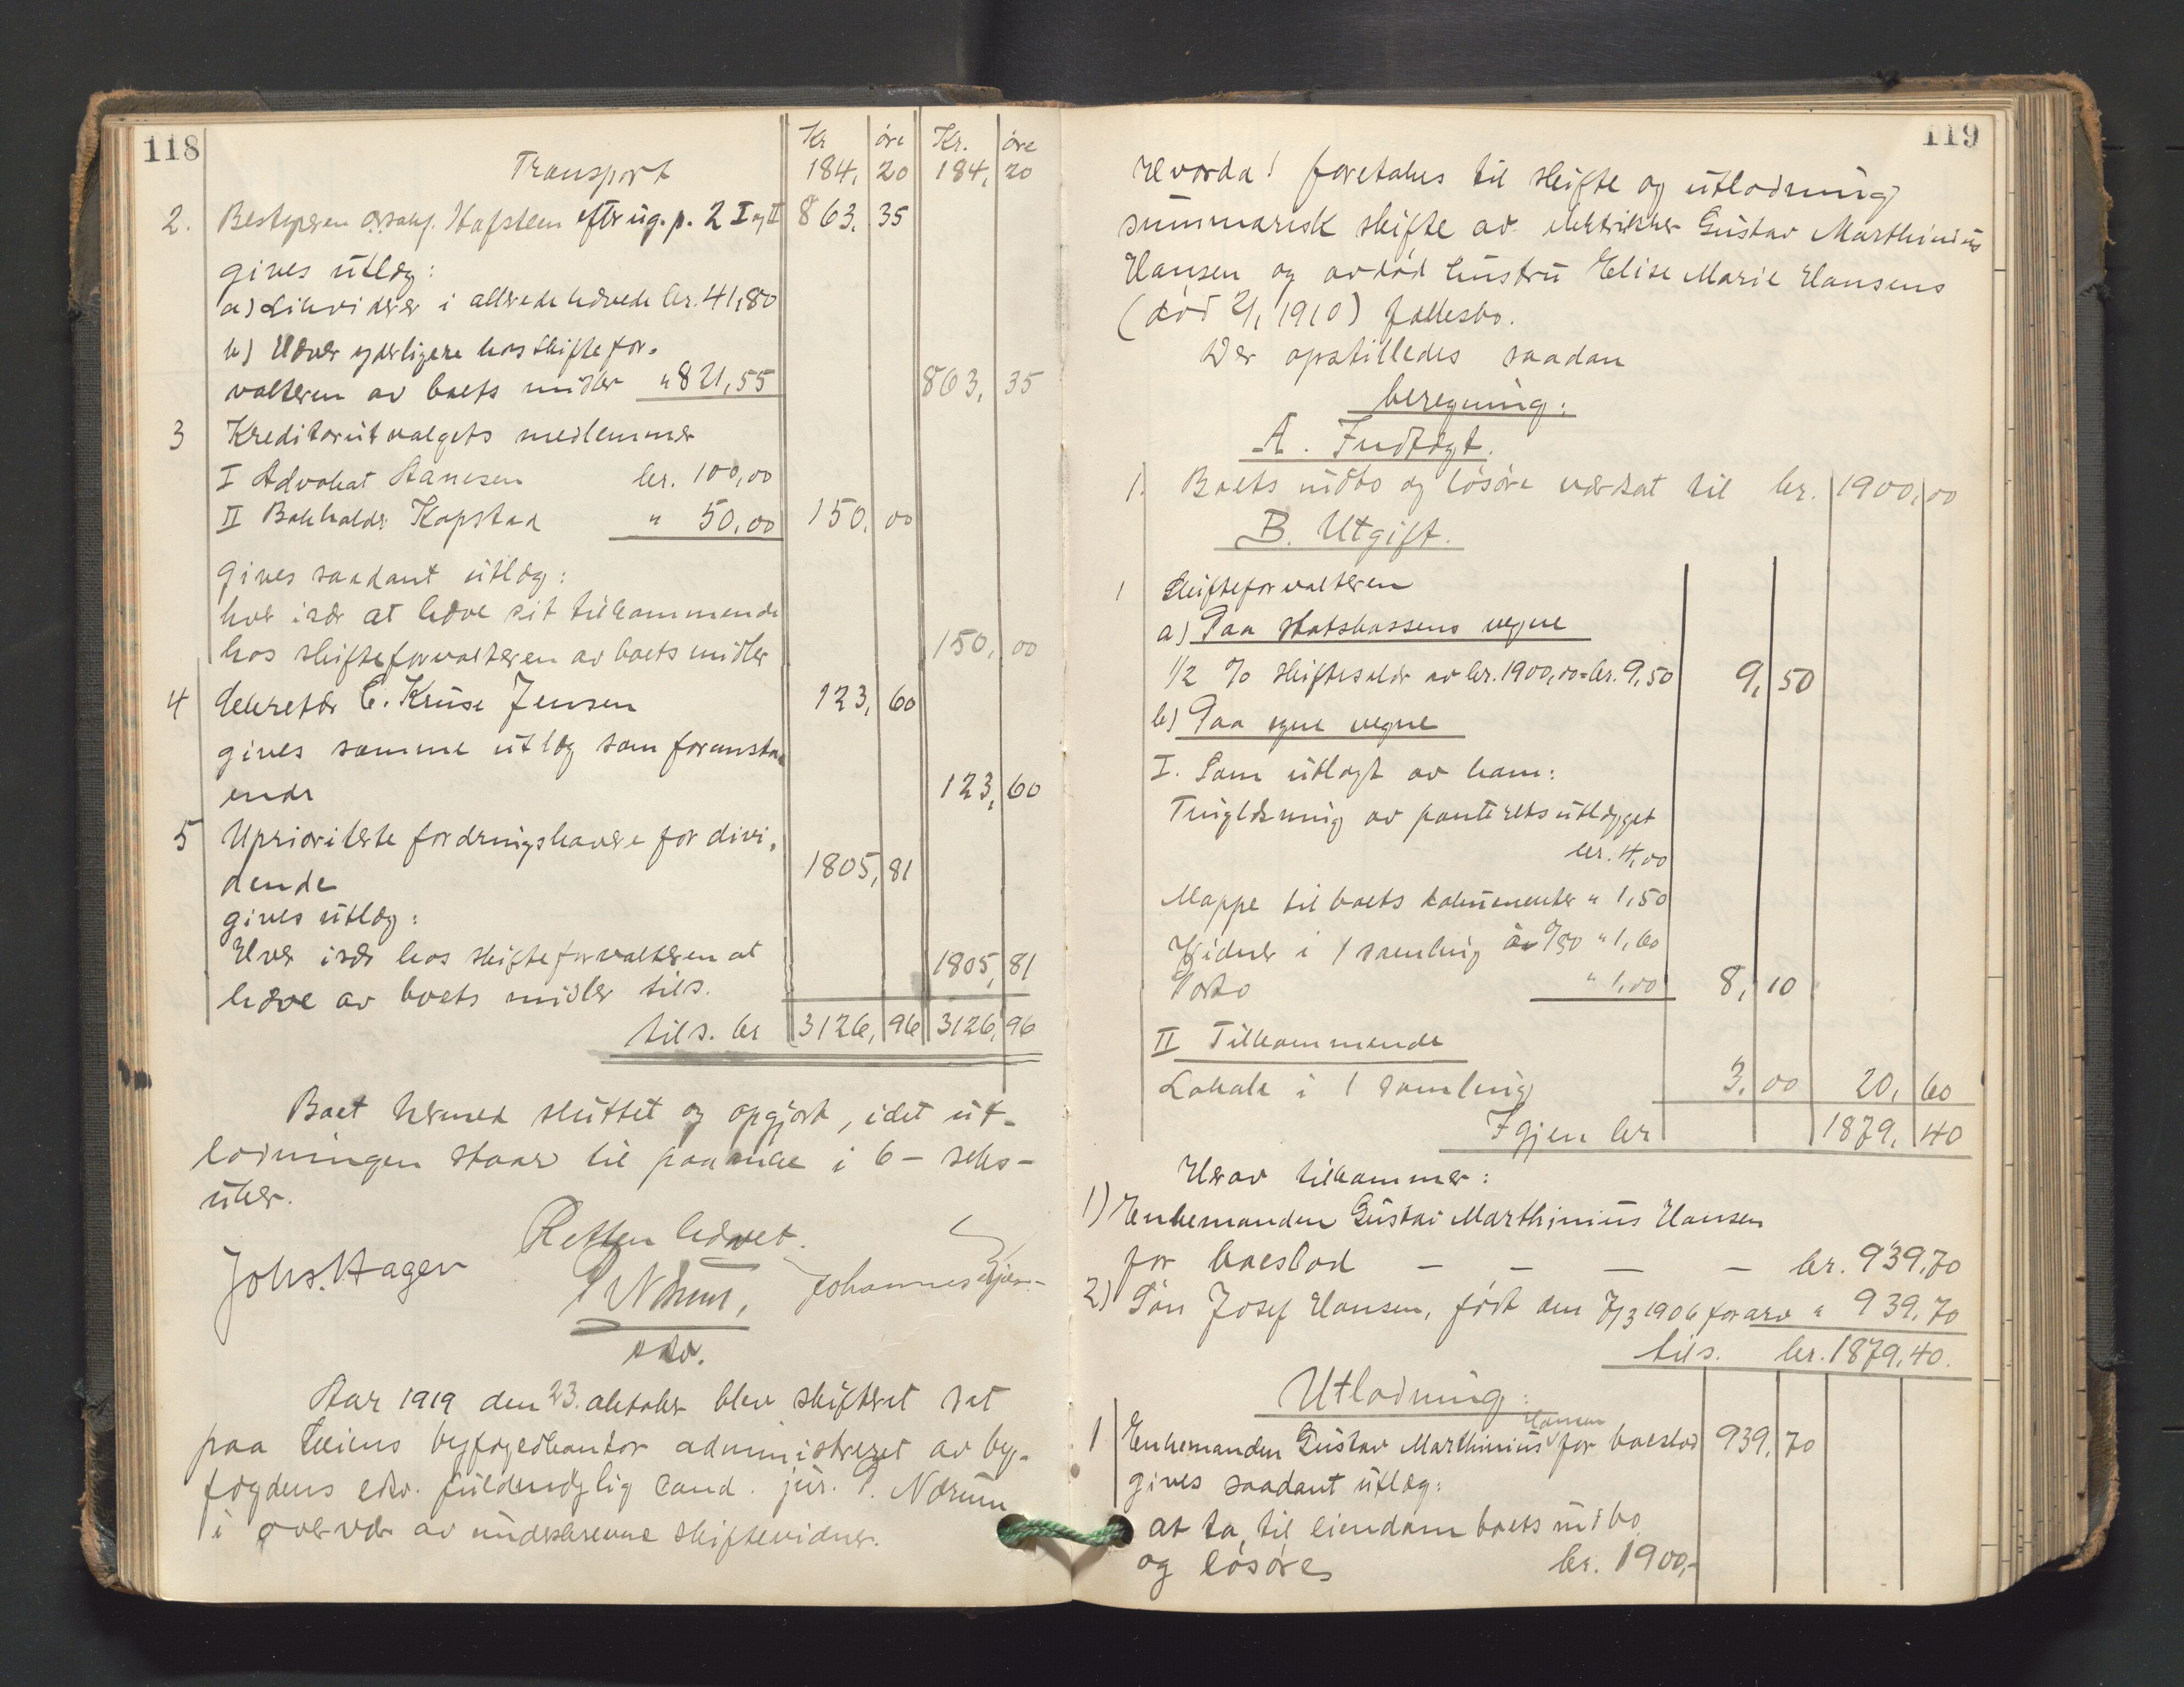 118
Kr øre Kr. øre
Transport 184, 20 184, 20
2. Bestyreren o.r.sakf. Hafsteen efter ug. p. 2 I og II 863, 35
gives utlæg:
a) Likviderer i allerede hævede kr. 41,80
b) Hæver yderligere hos skiftefor-
valteren av boets midler " 821,55 863, 35
3 Kreditorutvalgets medlemmer
I Advokat Aanesen kr. 100,00
II Bokholder Kopstad " 50,00 150, 00
gives saadant utlæg:
hver især at hæve sit tilkommende
hos skifteforvalteren av boets midler 150, 00
4 Sekretær C. Kruse Jensen 123, 60
gives samme utlæg som foransta-
ende 123, 60
5 Uprioriterte fordringshavere for divi-
dende 1805, 81
gives utlæg:
Hver især hos skifteforvalteren at
hæve av boets midler tils. 1805, 81
tils. kr 3126, 96 3126, 96
Boet hermed sluttet og opgjort, idet ut-
lodningen staar til paaanke i 6 - seks -
uker.
Retten hævet.
Johs. Hagen P Nørum, Johannes
edv.
Aar 1919 den 23. oktober blev skifteret sat
paa Skiens byfogedkontor administreret av by-
fogdens edsv. fuldmægtig cand. jur. P. Nørum
i overvær av underskrevne skiftevidner.
119
Hvorda! foretokes til skifte og utlodning
summarisk skifte av elektriker Gustav Marthinius
Hansen og avdød hustru Elise Marie Hansens
(død 2/1 1910) fællesbo.
Der opstilledes saadan
beregning:
A. Indtægt.
1. Boets indbo og løsøre værdsat til kr. 1900,00
B. Utgift.
1 Skifteforvalteren
a) Paa statskassens vegne
1/2 % skiftesalær av kr. 1900,00 = kr. 9,50 9, 50
b) Paa egne vegne
I. Som utlagt av ham:
Tinglæsning av panteretsutlægget
kr. 4,00
Mappe til boets dokumenter " 1,50
Vidner i 1 samling av 0/80 " 1,60
Porto " 1,00 8, 10
II Tilkommende
Lokale i 1 samling 3, 00 20, 60
Igjen kr 1879, 40
Herav tilkommer:
1) Enkemanden Gustav Marthinius Hansen
for boeslod — — — — kr. 939,70
2) Søn Josef Hansen, født den 7/3 1906 for arv " 939,70
tils. kr. 1879,40.
Utlodning:
Hansen
1 Enkemanden Gustav Marthinius for boeslod 939, 70
gives saadant utlæg:
at ta til eiendom boets indbo
og løsøre kr. 1900,-